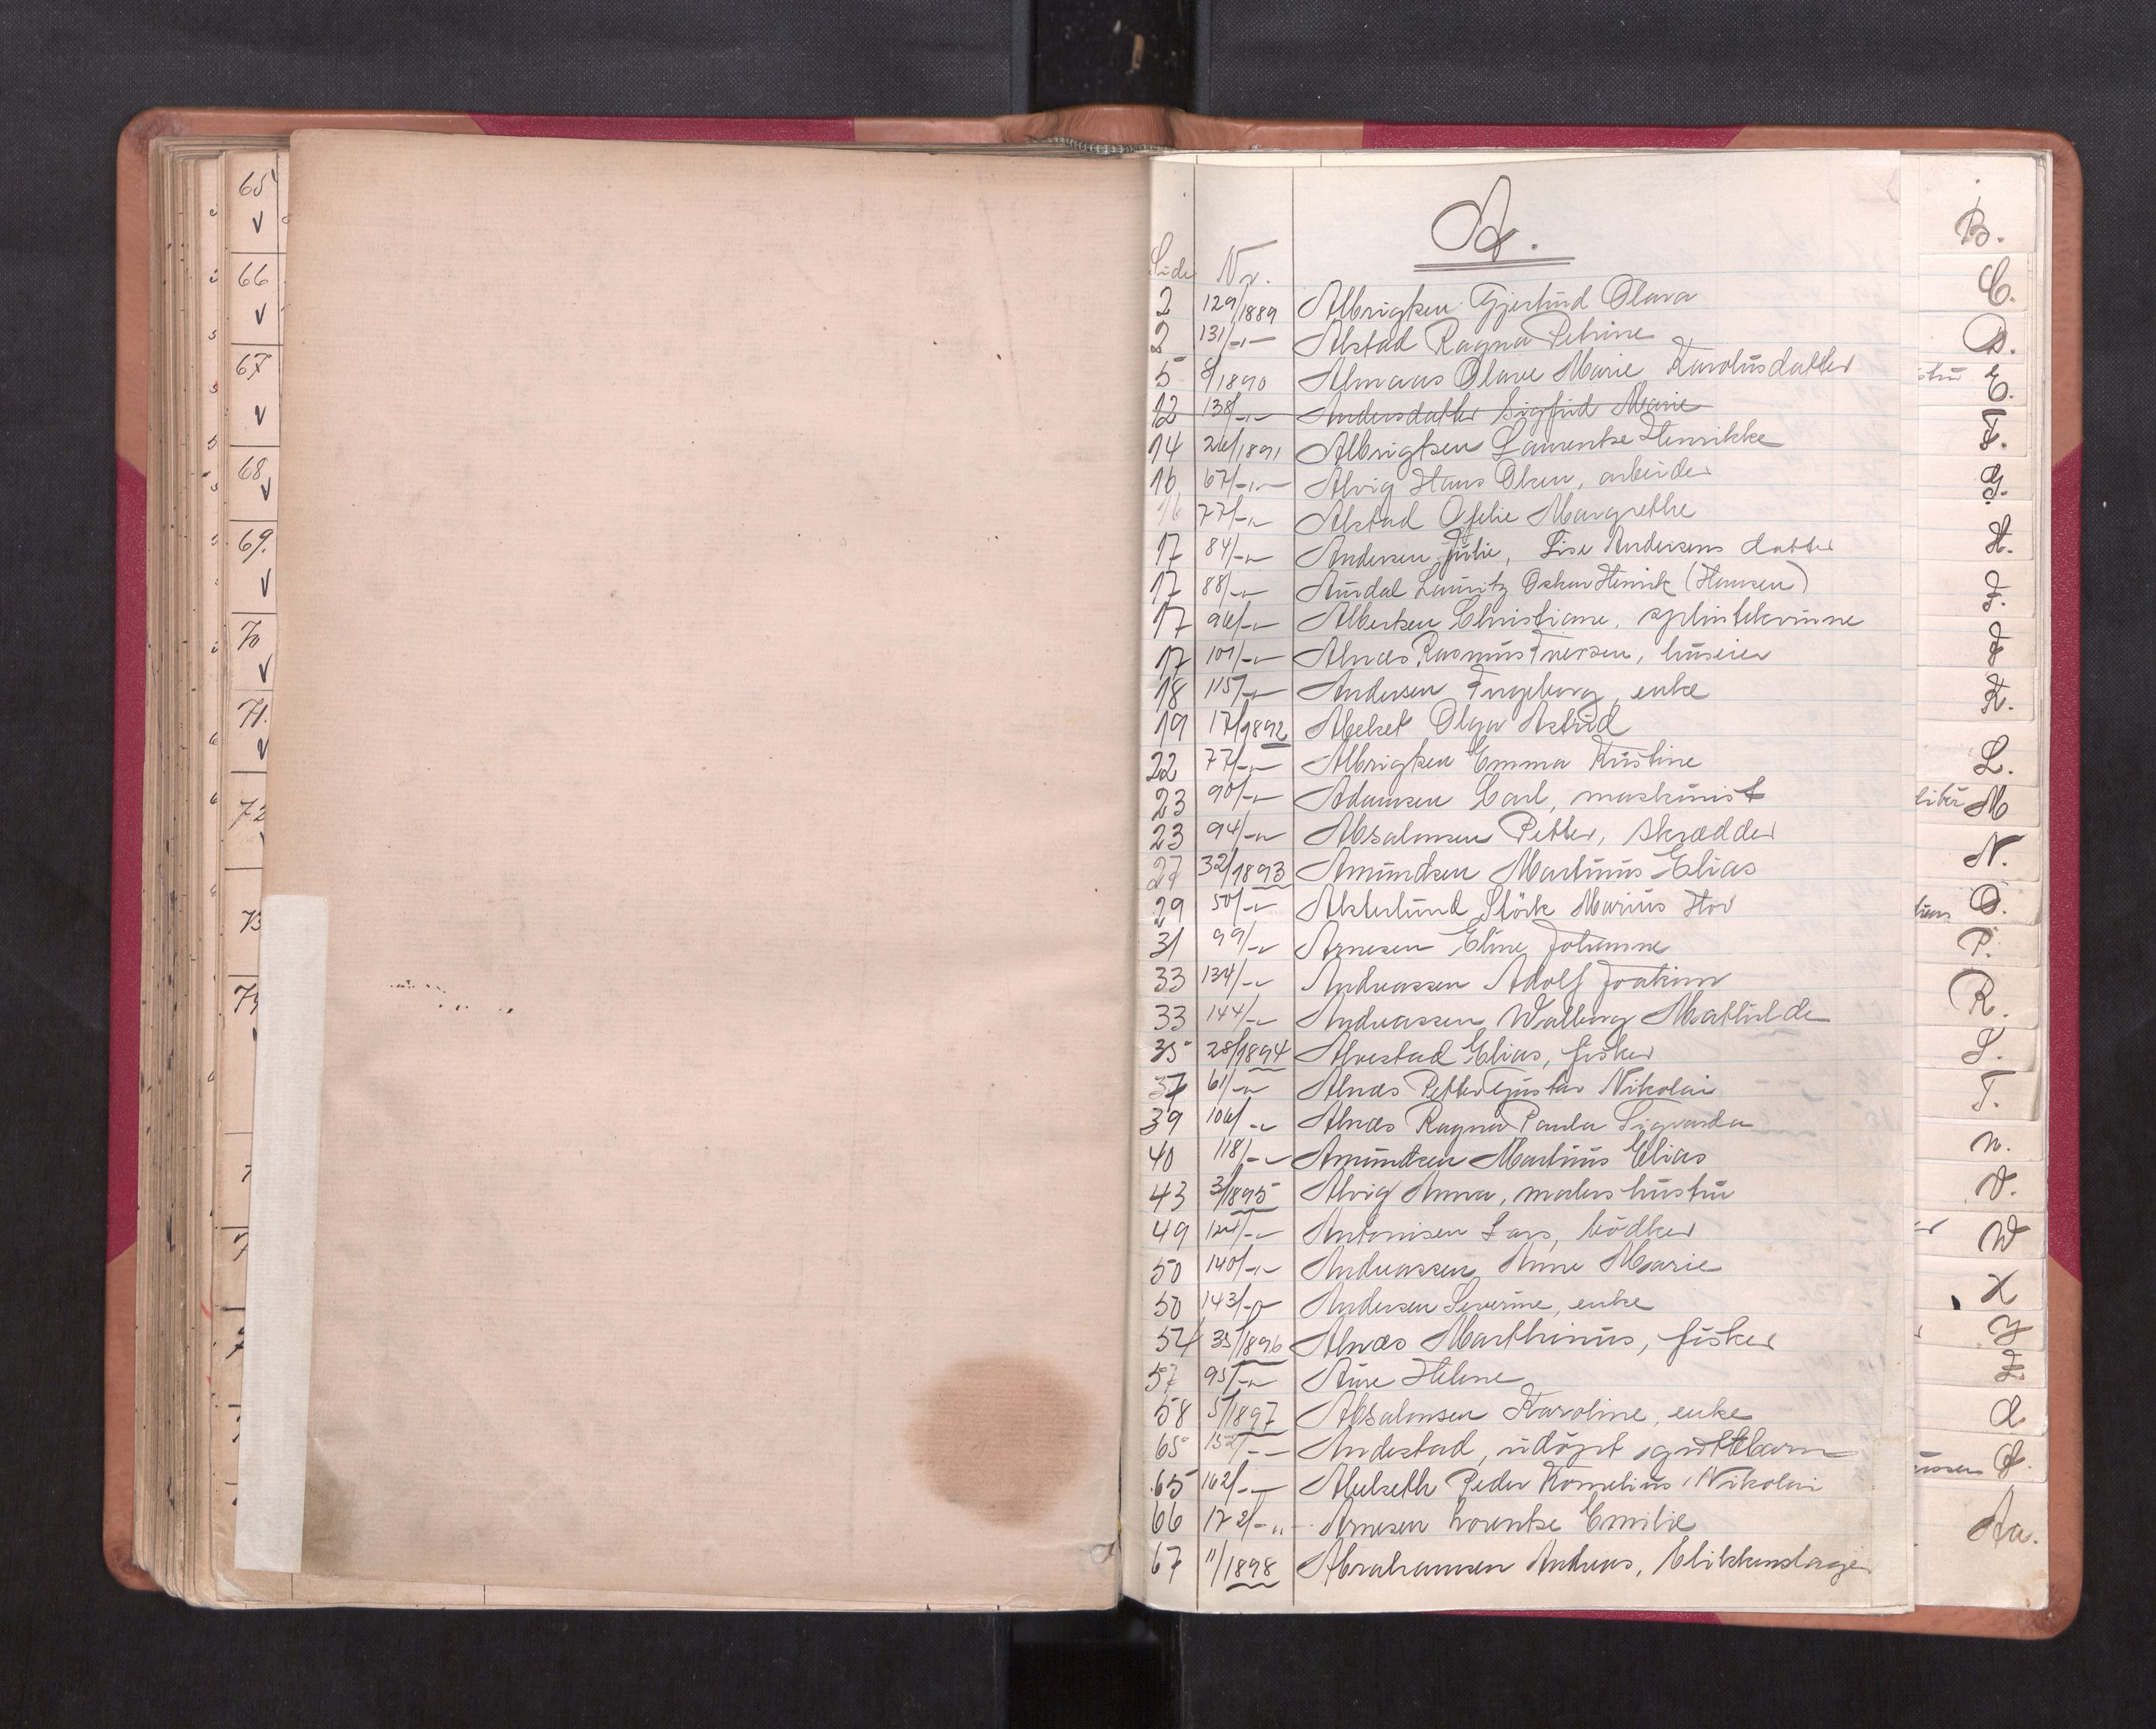 65
V
66
V
67
V
68
V
69.
V
70
V
71.
V
72
73
A.
Side Nr.
2 129/1889 Albrigtsen Gjertrud Olava
2 131/-"- Alstad Ragna Petrine
5 8/1890 Almaas Olave Marie Karolusdatter
12 138/-"- Andersdatter Sigfrid Marie
14 26/1891 Albrigtsen Laurentse Henrikke
16 67/-"- Alvig Hans Olsen, arbeider
16 77/-"- Alstad Ofelie Margrethe
17 84/-"- Andersen Julie, Lise Andersens datter
17 88/-"- Aurdal Lauritz Oskar Henrik (Hansen)
17 96/-"- Albertsen Christiane, splintekvinne
17 101/-"- Alnæs Rasmus Iversen, huseier
18 115/-"- Andersen Ingeborg, enke
19 17/1892 Abelset Olga Astrid
22 77/-"- Albrigtsen Emma Kristine
23 90/-"- Adamsen Carl, maskinist
23 94/-"- Absalonsen Petter, skrædder
27 32/1893 Amundsen Martinus Elias
29 50/-"- Alsterlund Störk Marius Hov
31 99/-"- Arnesen Eline Johanne
33 134/-"- Andreassen Adolf Joakim
33 144/-"- Andreassen Walborg Mathilde
35 28/1894 Alvestad Elias, fisker
37 61/-"- Alnæs Petter Gustav Nikolai
39 106/-"- Alnæs Ragna Paula Sigvarda
40 118/-"- Amundsen Martinus Elias
43 3/1895 Alvig Anna, malers hustru
49 124/-"- Antonisen Lars, bödker
50 140/-"- Andreassen Anne Marie
50 143/-"- Andersen Severine, enke
54 35/1896 Alnæs Marthinus, fisker
57 95/-"- Aure Helene
58 5/1897 Absalonsen Karoline, enke
65 152/-"- Andestad, udöpt guttebarn
65 162/-"- Abelseth Peder Kornelius Nikolai
66 172/-"- Arnesen Lorentse Emilie
67 11/1898 Abrahamsen Andreas, blikkenslager
B.
C.
D.
E.
F.
G.
H.
I.
J
K.
L.
M
N.
O.
P.
R.
S.
T.
U.
V.
W
X
Y
Z
Æ
Ø.
Aa.